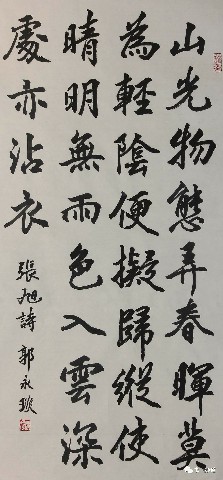 山光物態弄春暉莫
為輕陰便擬歸縱使
晴明無雨色入雲深
處亦沾衣
張旭詩 郭永琰